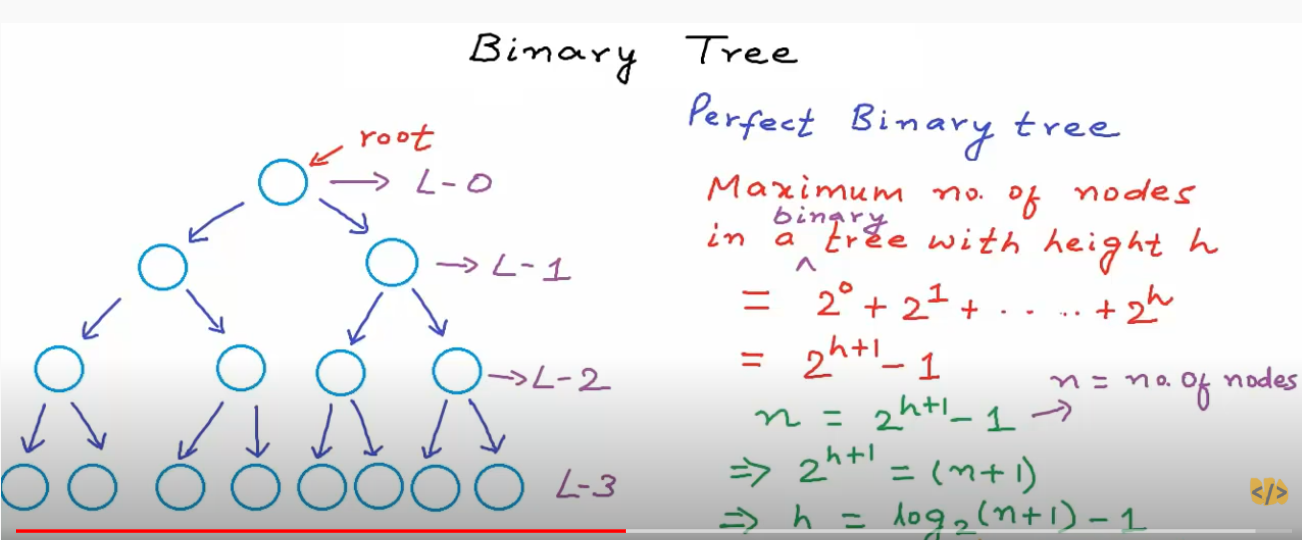 Binary Tree
root
L-0
L-1
L-2
L-3
Perfect Binary tree
Maximum no. of nodes
in a binary tree with height h
= 2⁰ + 2¹ + . . . . + 2ʰ
= 2ʰ⁺¹ - 1
n = 2ʰ⁺¹ - 1 → n = no. of nodes
⇒ 2ʰ⁺¹ = (n+1)
⇒ h = log₂(n+1) - 1
</>